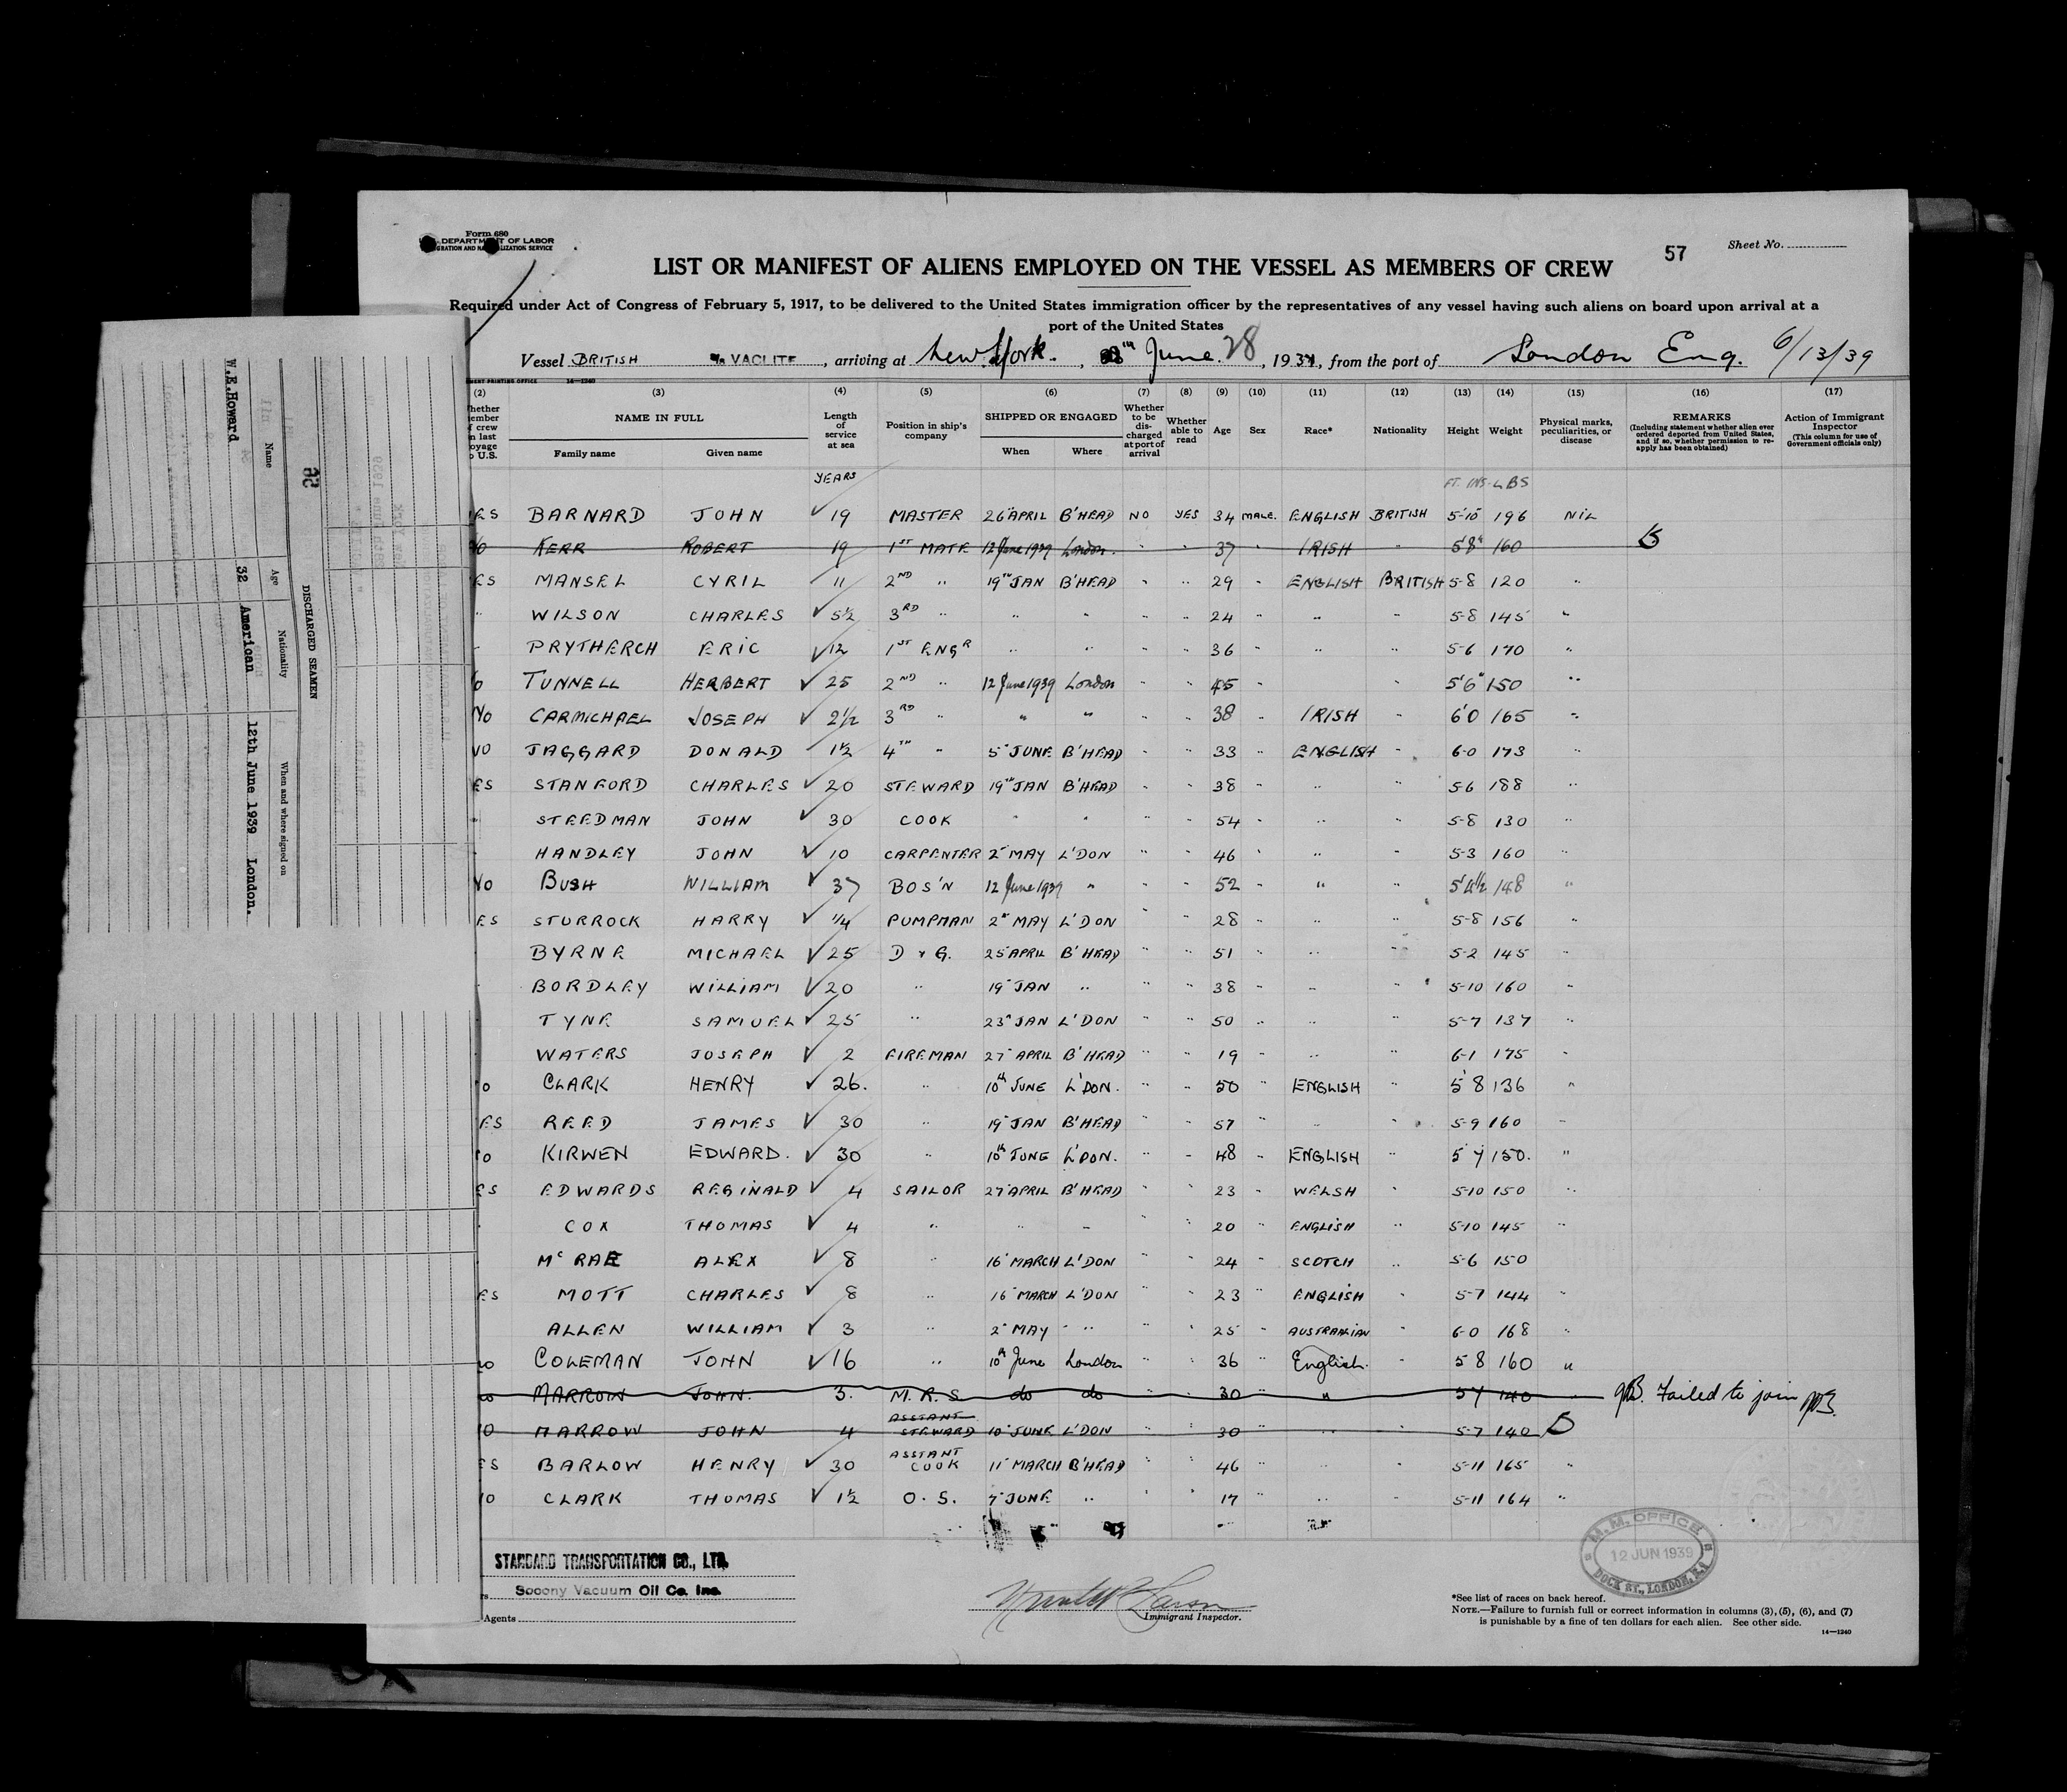 Form 680
DEPARTMENT OF LABOR
IGRATION AND NATURALIZATION SERVICE
57
Sheet No.
LIST OR MANIFEST OF ALIENS EMPLOYED ON THE VESSEL AS MEMBERS OF CREW
Required under Act of Congress of February 5, 1917, to be delivered to the United States immigration officer by the representatives of any vessel having such aliens on board upon arrival at a
port of the United States
Vessel BRITISH VACLITE, arriving at New York, June 28, 1939, from the port of London Eng. 6/13/39
MENT PRINTING OFFICE 14—1240
(2) (3) (4) (5) (6) (7) (8) (9) (10) (11) (12) (13) (14) (15) (16) (17)
hether ember f crew n last oyage o U.S. NAME IN FULL Family name Given name Length of service at sea Position in ship's company SHIPPED OR ENGAGED When Where Whether to be dis-charged at port of arrival Whether able to read Age Sex Race* Nationality Height Weight Physical marks, peculiarities, or disease REMARKS (Including statement whether alien ever ordered deported from United States, and if so, whether permission to re-apply has been obtained) Action of Immigrant Inspector (This column for use of Government officials only)
YEARS FT. INS LBS
ES BARNARD JOHN 19 MASTER 26 APRIL B'HEAD NO YES 34 MALE. ENGLISH BRITISH 5-10 196 NIL
o KERR ROBERT 19 1ST MATE 12 June 1939 London. " " 37 " IRISH " 5'8" 160
ES MANSEL CYRIL 11 2ND " 19TH JAN B'HEAD " " 29 " ENGLISH BRITISH 5-8 120 "
" WILSON CHARLES 5½ 3RD " " " " " 24 " " " 5-8 145 "
" PRYTHERCH ERIC 12 1ST ENGR " " " " 36 " " " 5-6 170 "
o TUNNELL HERBERT 25 2ND " 12 June 1939 London " " 45 " " 5'6" 150 "
No CARMICHAEL JOSEPH 2½ 3RD " " " " " 38 " IRISH " 6'0 165 "
NO JAGGARD DONALD 1½ 4TH " 5" JUNE B'HEAD " " 33 " ENGLISH " 6-0 173 "
ES STANFORD CHARLES 20 STEWARD 19TH JAN B'HEAD " " 38 " " " 5-6 188 "
" STEEDMAN JOHN 30 COOK " " " " 54 " " " 5-8 130 "
" HANDLEY JOHN 10 CARPENTER 2" MAY L'DON " " 46 " " " 5-3 160 "
No BUSH WILLIAM 37 BOS'N 12 June 1939 " " " 52 " " " 5'4½ 148 "
ES STURROCK HARRY ¼ PUMPMAN 2" MAY L'DON " " 28 " " " 5-8 156 "
BYRNE MICHAEL 25 D & G. 25 APRIL B'HEAD " " 51 " " " 5-2 145 "
BORDLEY WILLIAM 20 " 19" JAN " " " 38 " " " 5-10 160 "
TYNE SAMUEL 25 " 23" JAN L'DON " " 50 " " " 5-7 137 "
WATERS JOSEPH 2 FIREMAN 27" APRIL B'HEAD " " 19 " " " 6-1 175 "
o CLARK HENRY 26. " 10th JUNE L'DON. " " 50 " ENGLISH " 5'8 136 "
ES REED JAMES 30 " 19" JAN B'HEAD " " 57 " " " 5-9 160 "
o KIRWEN EDWARD. 30 " 10th JUNE L'DON. " " 48 " ENGLISH " 5'7 150. "
ES EDWARDS REGINALD 4 SAILOR 27" APRIL B'HEAD " " 23 " WELSH " 5-10 150 "
" COX THOMAS 4 " " " " " 20 " ENGLISH " 5-10 145 "
Mc RAE ALEX 8 " 16" MARCH L'DON " " 24 " SCOTCH " 5-6 150
ES MOTT CHARLES 8 " 16" MARCH L'DON " " 23 " ENGLISH " 5-7 144 "
ALLEN WILLIAM 3 " 2" MAY " " " 25 " AUSTRALIAN " 6-0 168 "
o COLEMAN JOHN 16 " 10th June London " " 36 " English. " 5 8 160 "
o MARROW JOHN. 3. M.R.S do do " " 30 " " 5 7 140 Failed to join
O MARROW JOHN 4 ASSTANT STEWARD 10" JUNE L'DON " 30 " 5-7 140
ES BARLOW HENRY 30 ASSTANT COOK 11" MARCH B'HEAD " " 46 " " " 5-11 165 "
O CLARK THOMAS 1½ O.S. 7" JUNE " " " 17 " " " 5-11 164 "
STANDARD TRANSPORTATION CO., LTD.
Socony Vacuum Oil Co. Inc.
Agents
Immigrant Inspector.
M.M. OFFICE
12 JUN 1939
DOCK ST., LONDON, E.1
*See list of races on back hereof.
NOTE.—Failure to furnish full or correct information in columns (3), (5), (6), and (7)
is punishable by a fine of ten dollars for each alien. See other side.
14—1240
DISCHARGED SEAMEN
Name Age Nationality When and where signed on
W.E.Howard 32 American 12th June 1939 London.